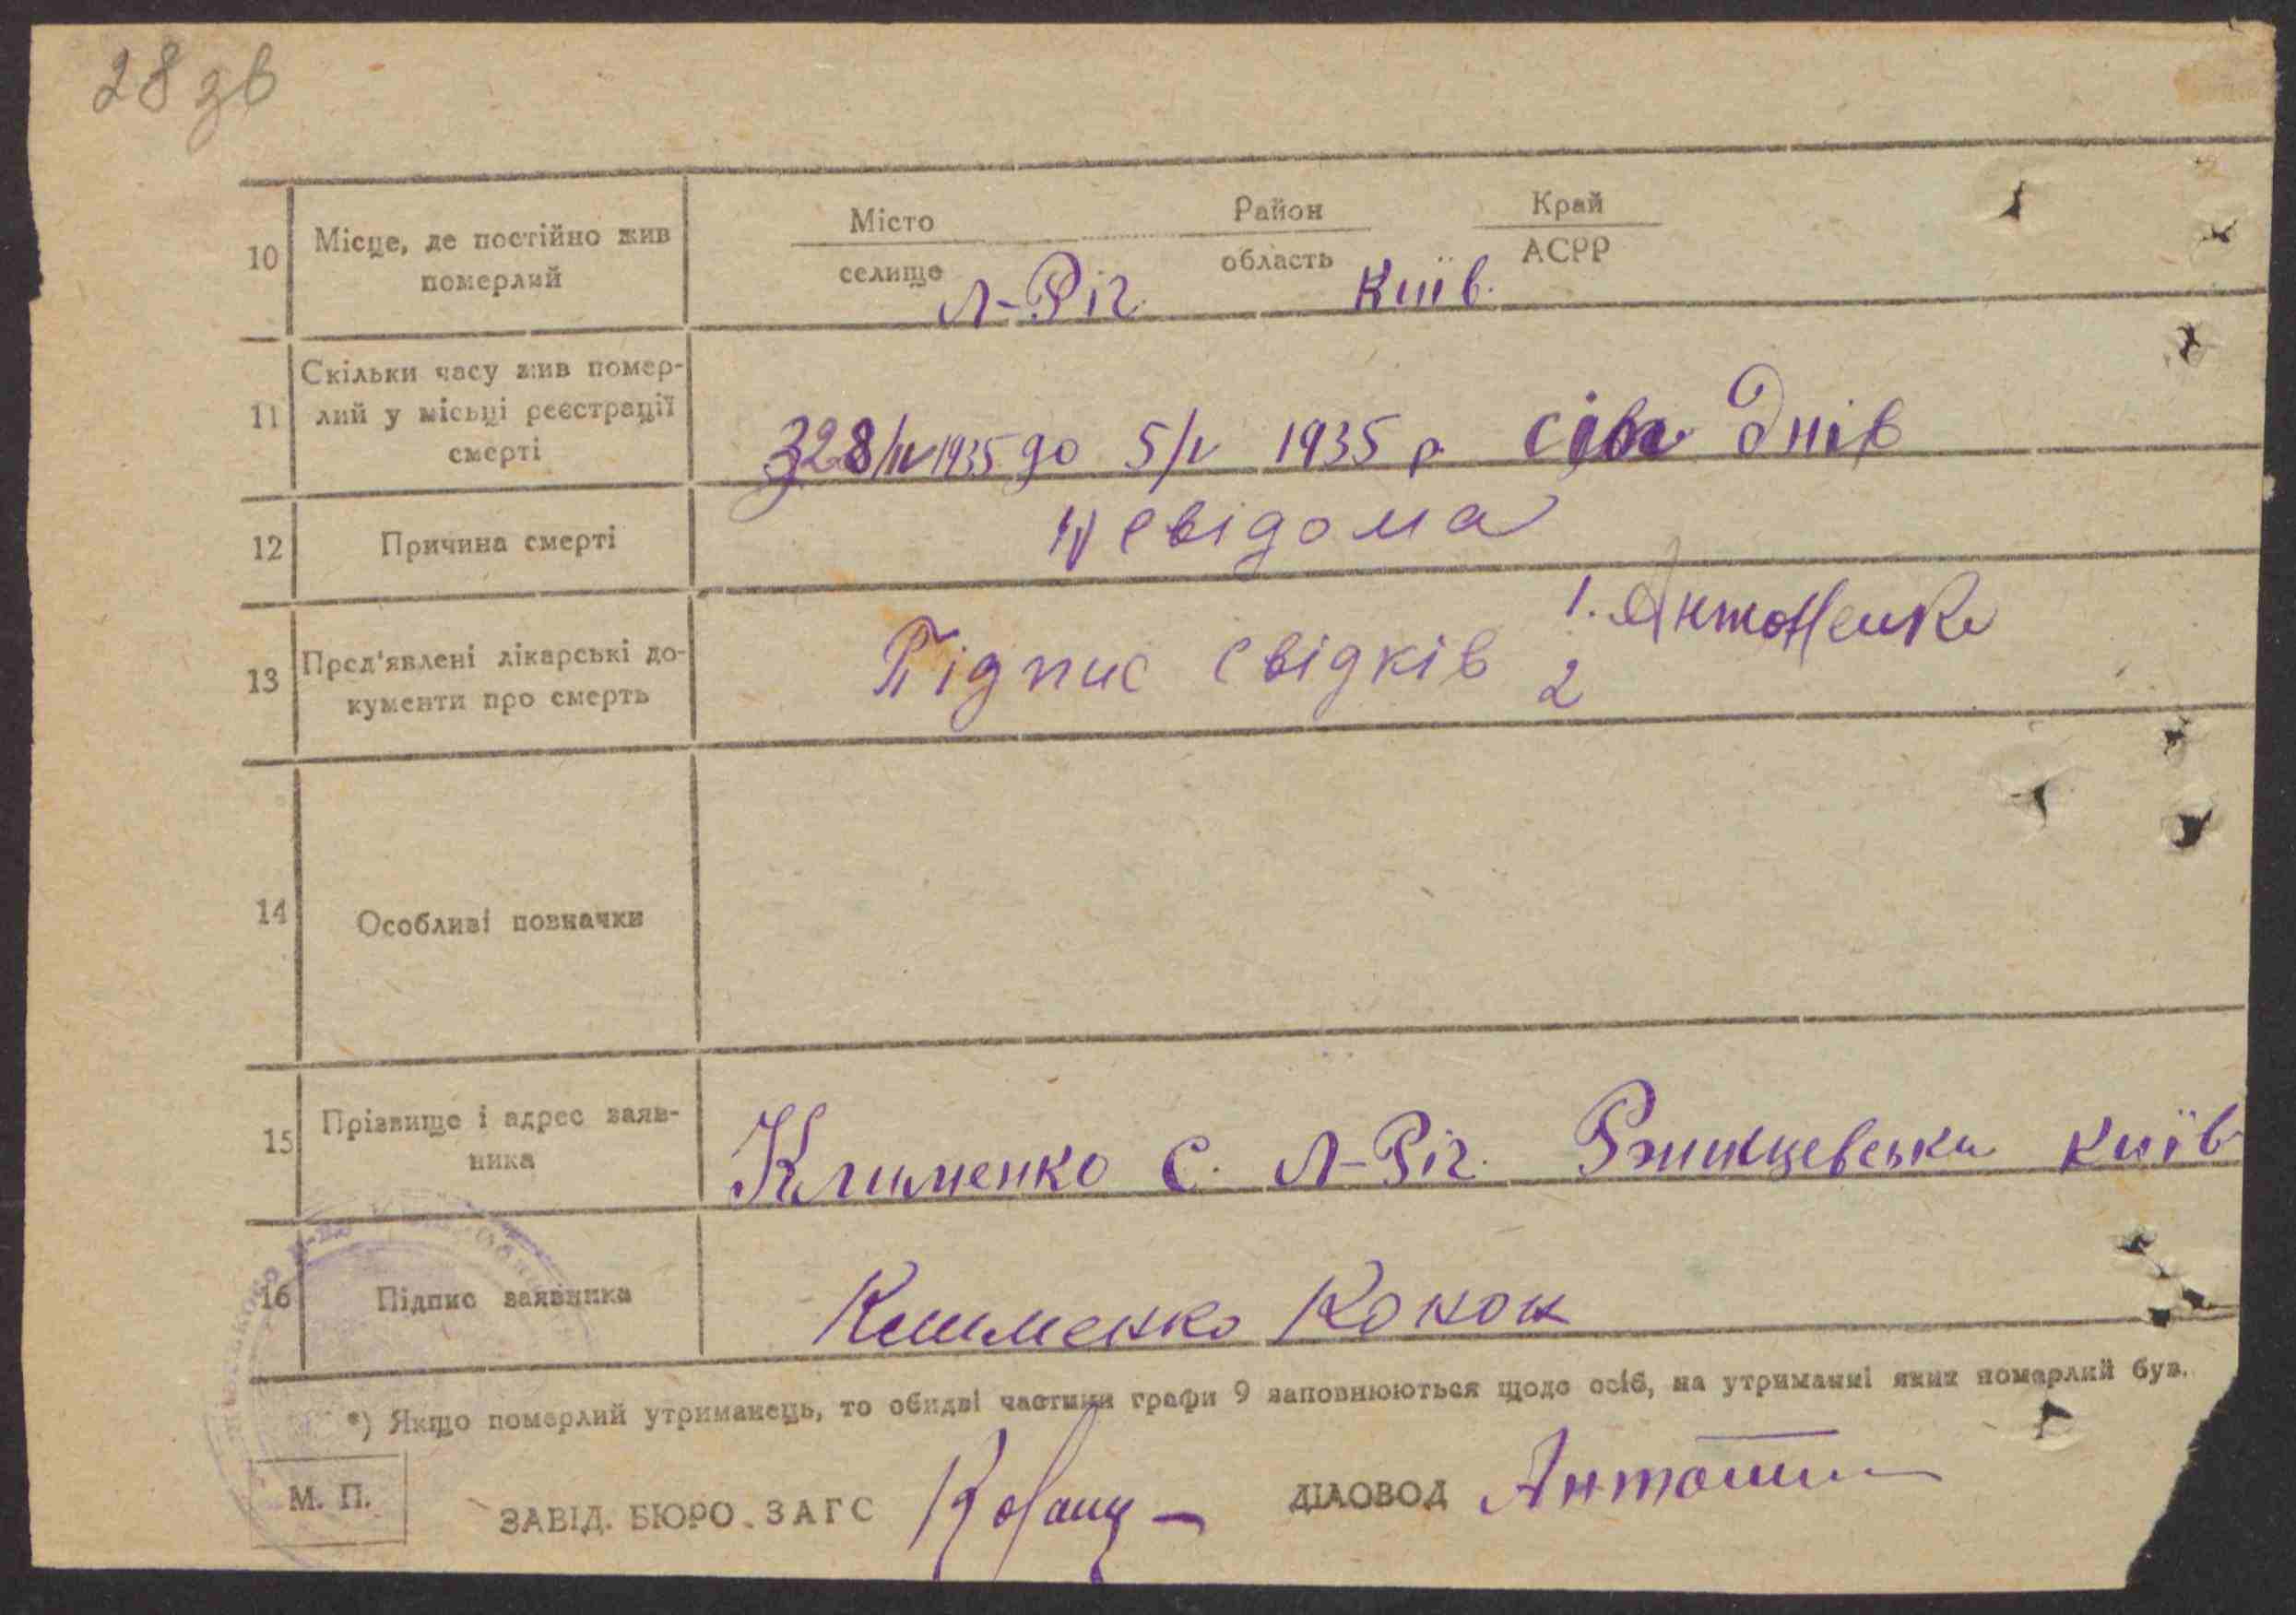 28 зв
Місто Район Край
10 Місце, де постійно жив померлий
селище область АСРР
Л-Ріг. Київ.
11 Скільки часу жив помер-
лий у місьці реєстрації
смерті
З 28/IV 1935 до 5/V 1935 р. сім днів
12 Причина смерті Невідома
13 Пред'явлені лікарські до-
кументи про смерть
Підпис свідків 1. Антоненко
2
14 Особливі позначки
15 Прізвище і адрес заяв-
ника
Клименко С. Л-Ріг. Ржищевськи Київ
16 Підпис заявника Клименко Конон
*) Якщо померлий утриманець, то обидві частини графи 9 заповнюються щодо осіб, на утриманні яких померлий був.
М. П.
ЗАВІД. БЮРО ЗАГС ДІЛОВОД